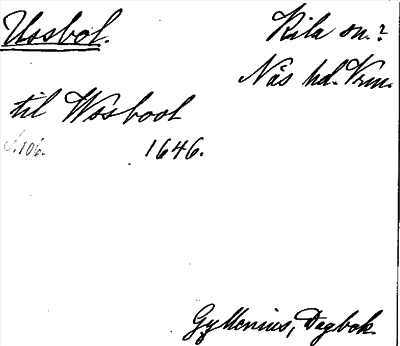 Ussbol. Kila sn.?
Näs hd. Vrm.
til Wssbool
S. 106. 1646.
Gyllenius, Dagbok.